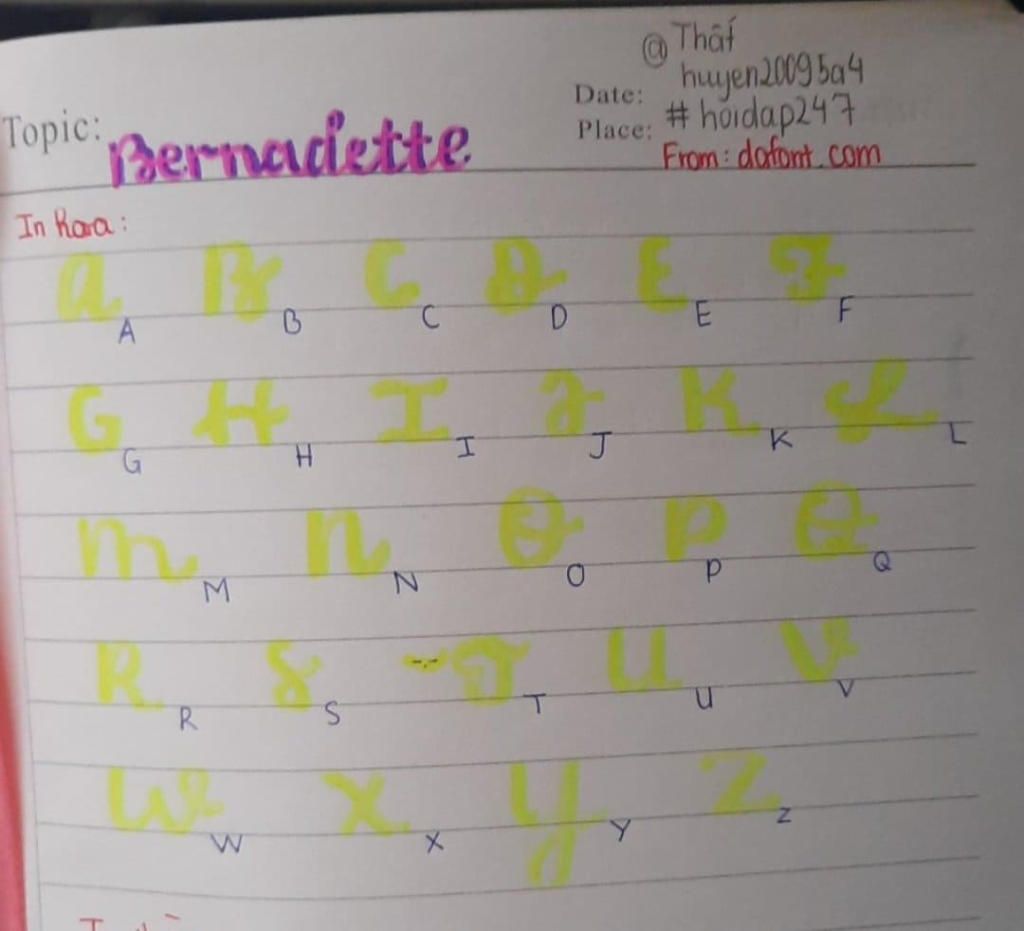 @ Thất
huyen20095a4
Date:
# hoidap247
Place:
Topic: Bernadette
From: dafont.com
In hoa:
a B C D E F
A B C D E F
G H I J K L
G H I J K L
m n O P Q
M N O P Q
R S T U V
R S T U V
W X Y Z
W X Y Z